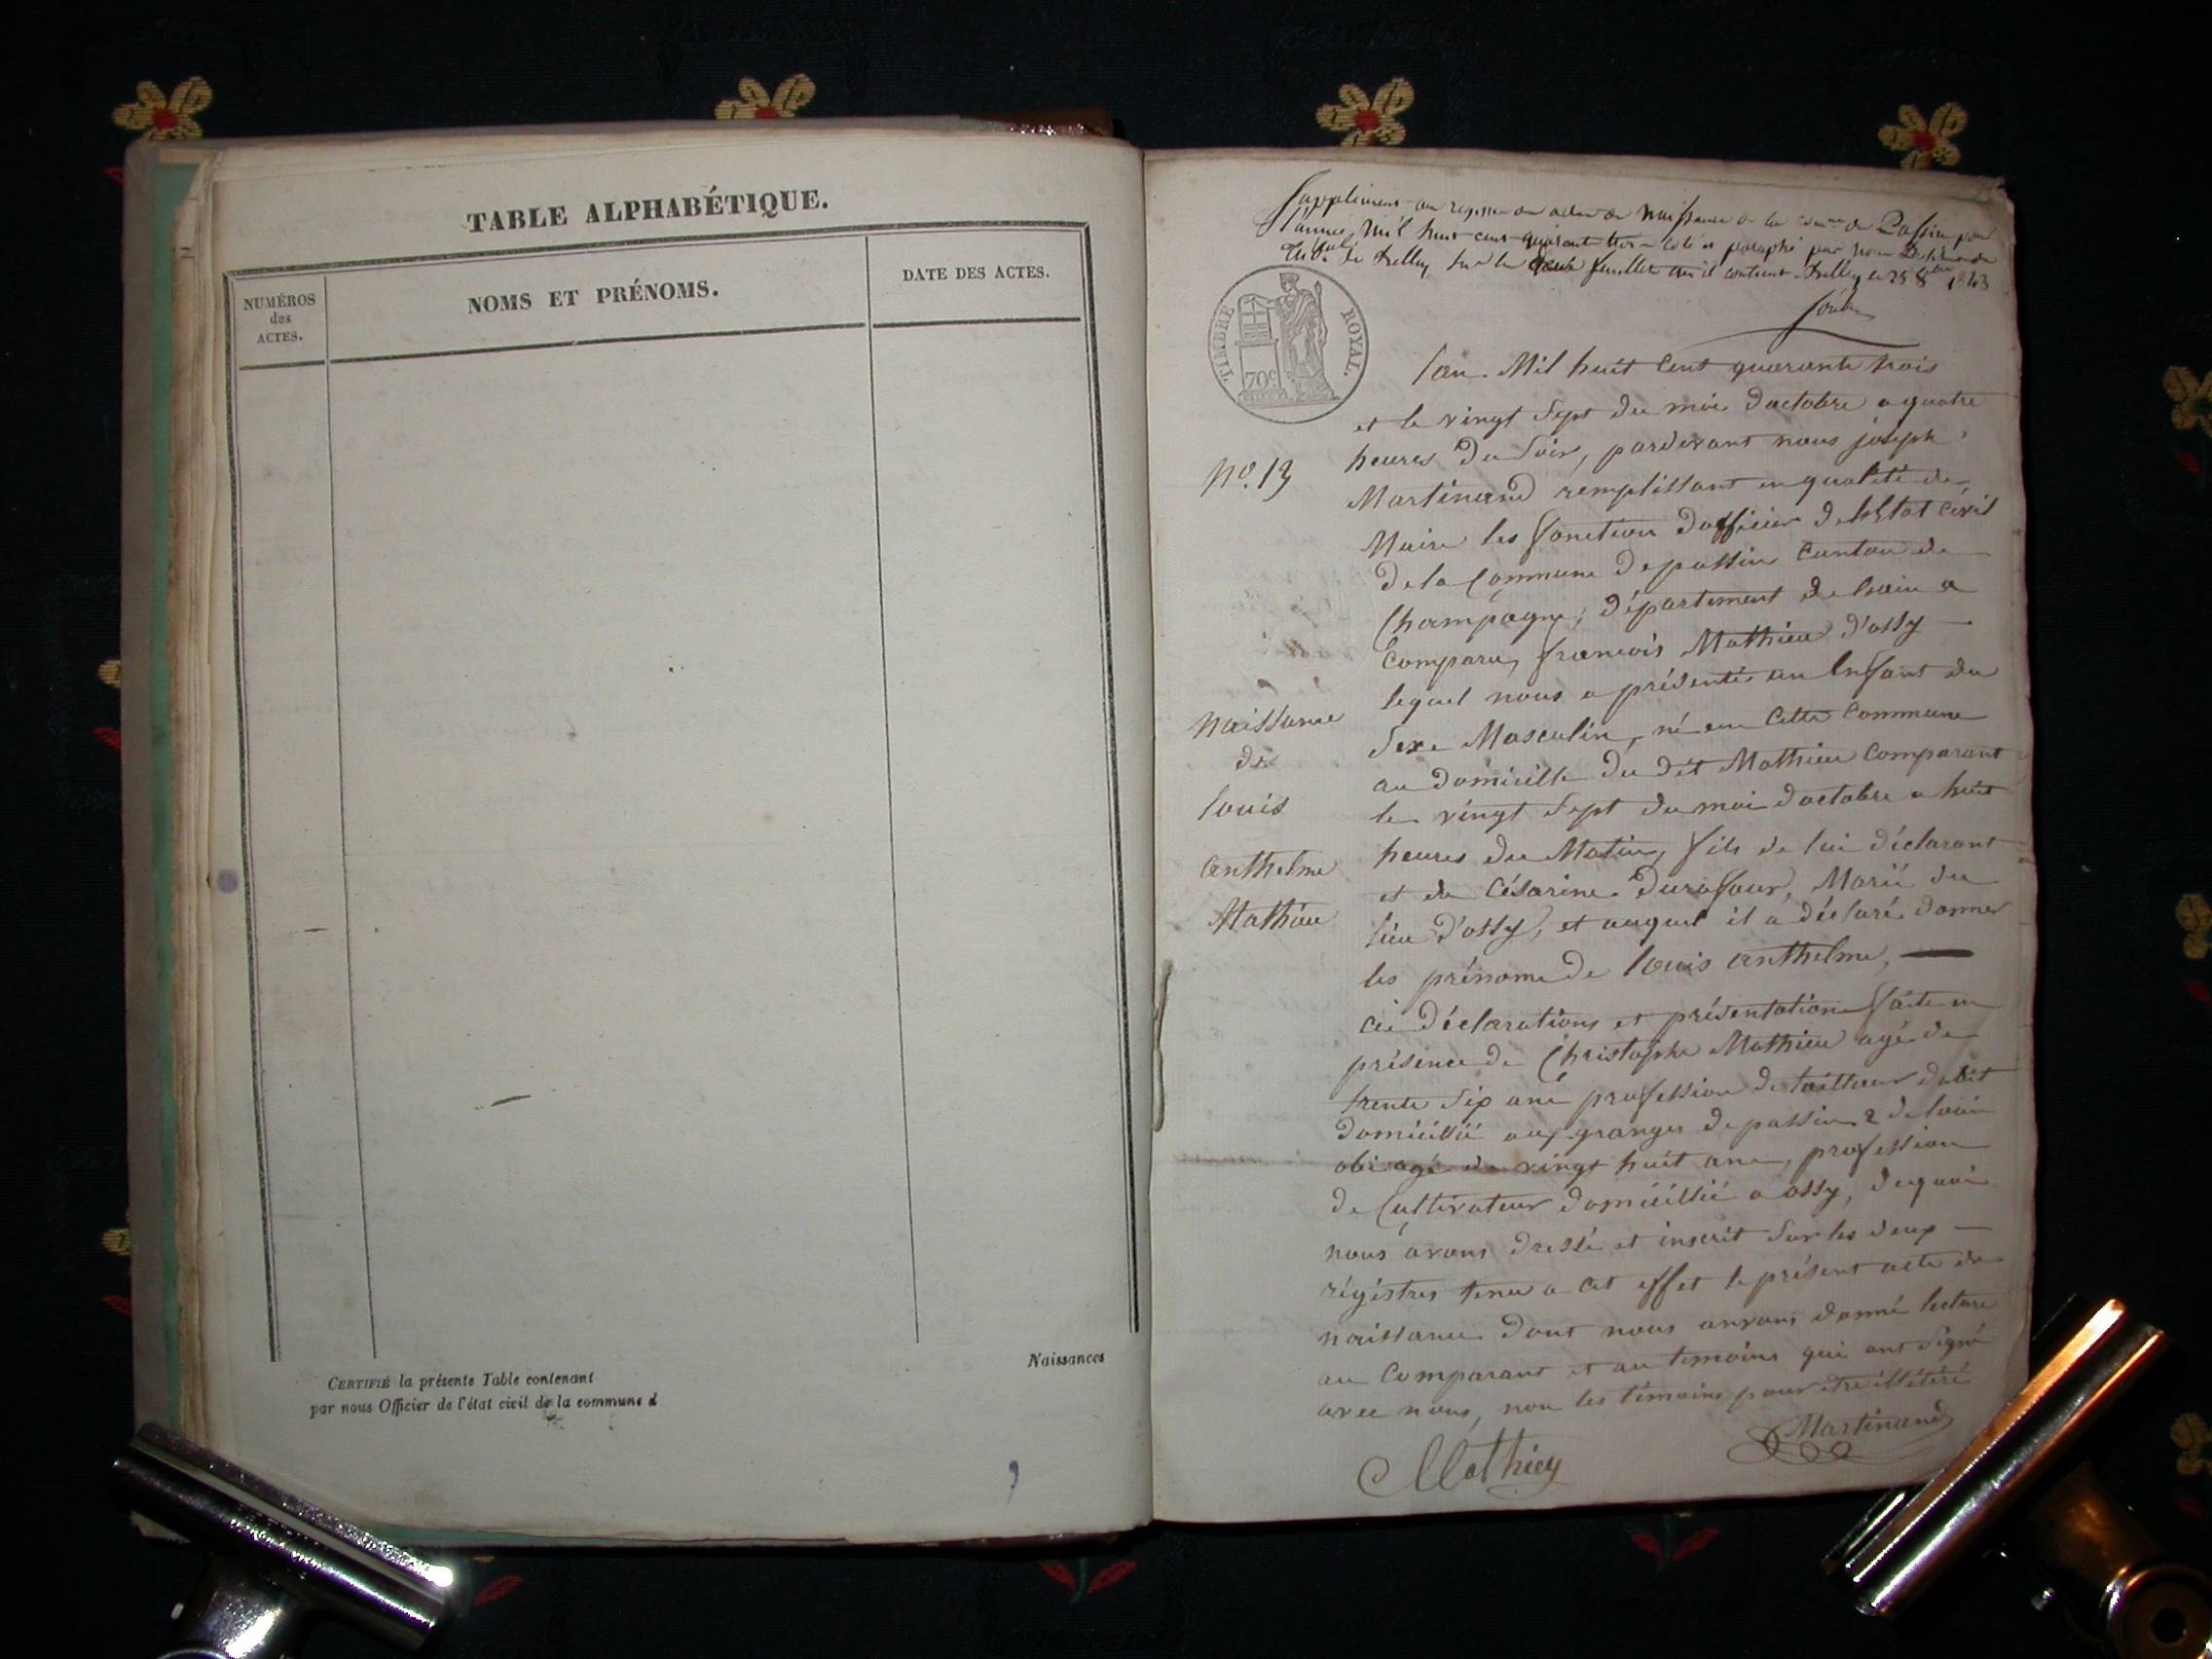 TABLE ALPHABÉTIQUE.
NUMÉROS
des
ACTES.
NOMS ET PRÉNOMS.
DATE DES ACTES.
Naissances
CERTIFIÉ la présente Table contenant
par nous Officier de l'état civil de la commune d
Supplément au registre des actes de Naissance de la Comne de Passin pour
l'année Mil huit cent quarante trois coté et paraphé par nous
de Belley sur les feuillets qu'il contient. Belley le 25 8bre 1843
TIMBRE ROYAL.
70c
lan Mil huit Cent quarante trois
et le vingt Sept du moi doctobre a quatre
heures du Soir, pardevant nous joseph
No. 13
Martinand remplissant en qualité de
Maire les fonction dofficier de lEtat Civil
De la Commune de passin Canton de
Champagne, département de lain a
Comparu, francois Mathieu d'ossy —
lequel nous a présenté un Enfant du
Sexe Masculin, né en Cette Commune
au domicille du dit Mathieu Comparant
le vingt Sept du moi doctobre a huit
heures du Matin, fils de lui déclarant
et de Césarine Durafour, Marié du
lieu d'ossy, et auquel il a déclaré donner
les prénoms de louis anthelme, —
Naissance
de
louis
anthelme
Mathieu
Ces déclarations et présentation faite en
présence de Christophe Mathieu agé de
trente Six ans profession de tailleur dabit
domicillié aux granges de passin & de louis
agé de vingt huit ans, profession
de Cultivateur domicillié a ossy, dequoi
nous avons dressé et inscrit Sur les deux —
régistres tenu a Cet effet le présent acte de
naissance dont nous avons donné lecture
au Comparant et au temoins qui ont Signé
avec nous, non les témoins pour etre illétéré
Martinand
Mathieu